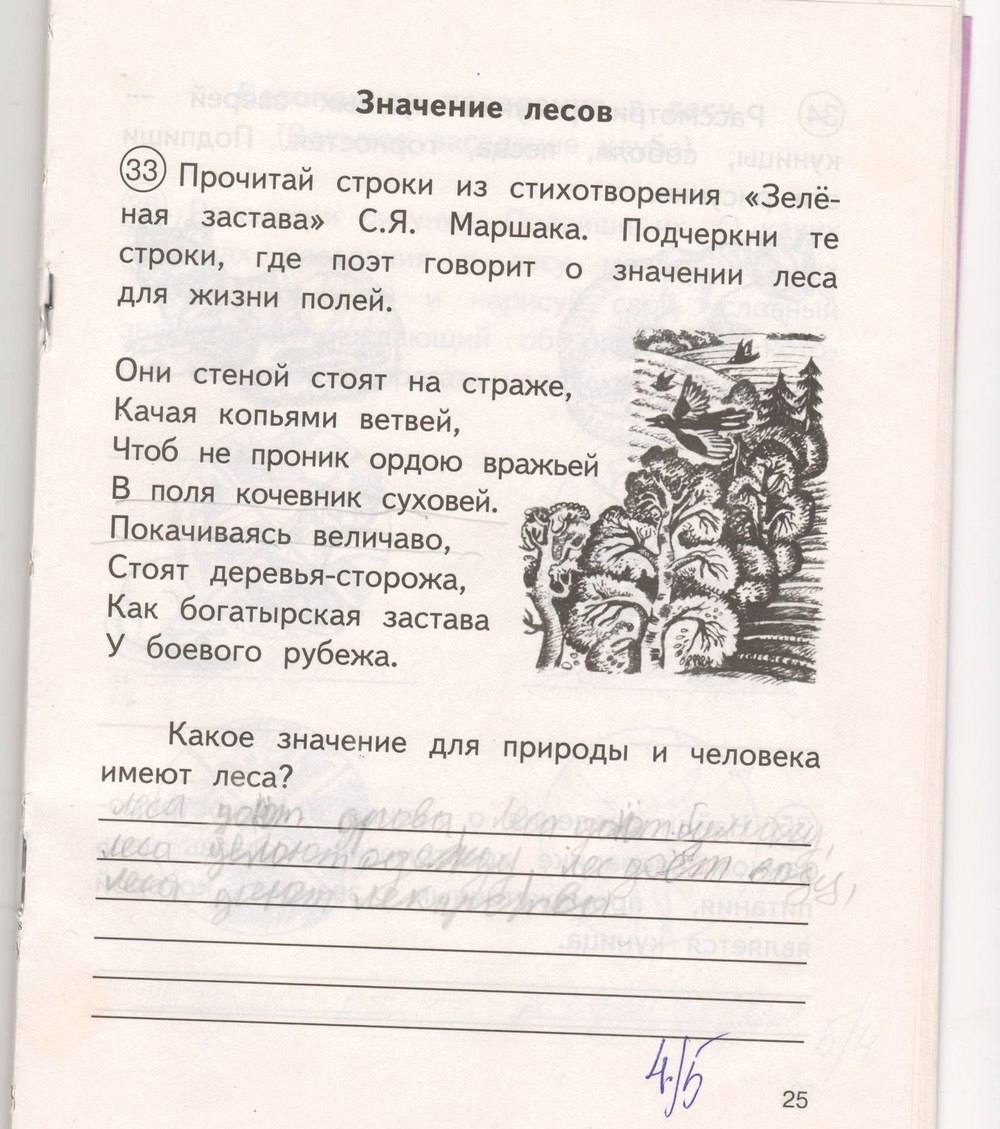 Значение лесов
33 Прочитай строки из стихотворения «Зелё-
ная застава» С.Я. Маршака. Подчеркни те
строки, где поэт говорит о значении леса
для жизни полей.
Они стеной стоят на страже,
Качая копьями ветвей,
Чтоб не проник ордою вражьей
В поля кочевник суховей.
Покачиваясь величаво,
Стоят деревья-сторожа,
Как богатырская застава
У боевого рубежа.
Какое значение для природы и человека
имеют леса?
леса дают дрова, леса дают бумагу,
леса лес даёт воду,
леса дают лекарство
4/5
25